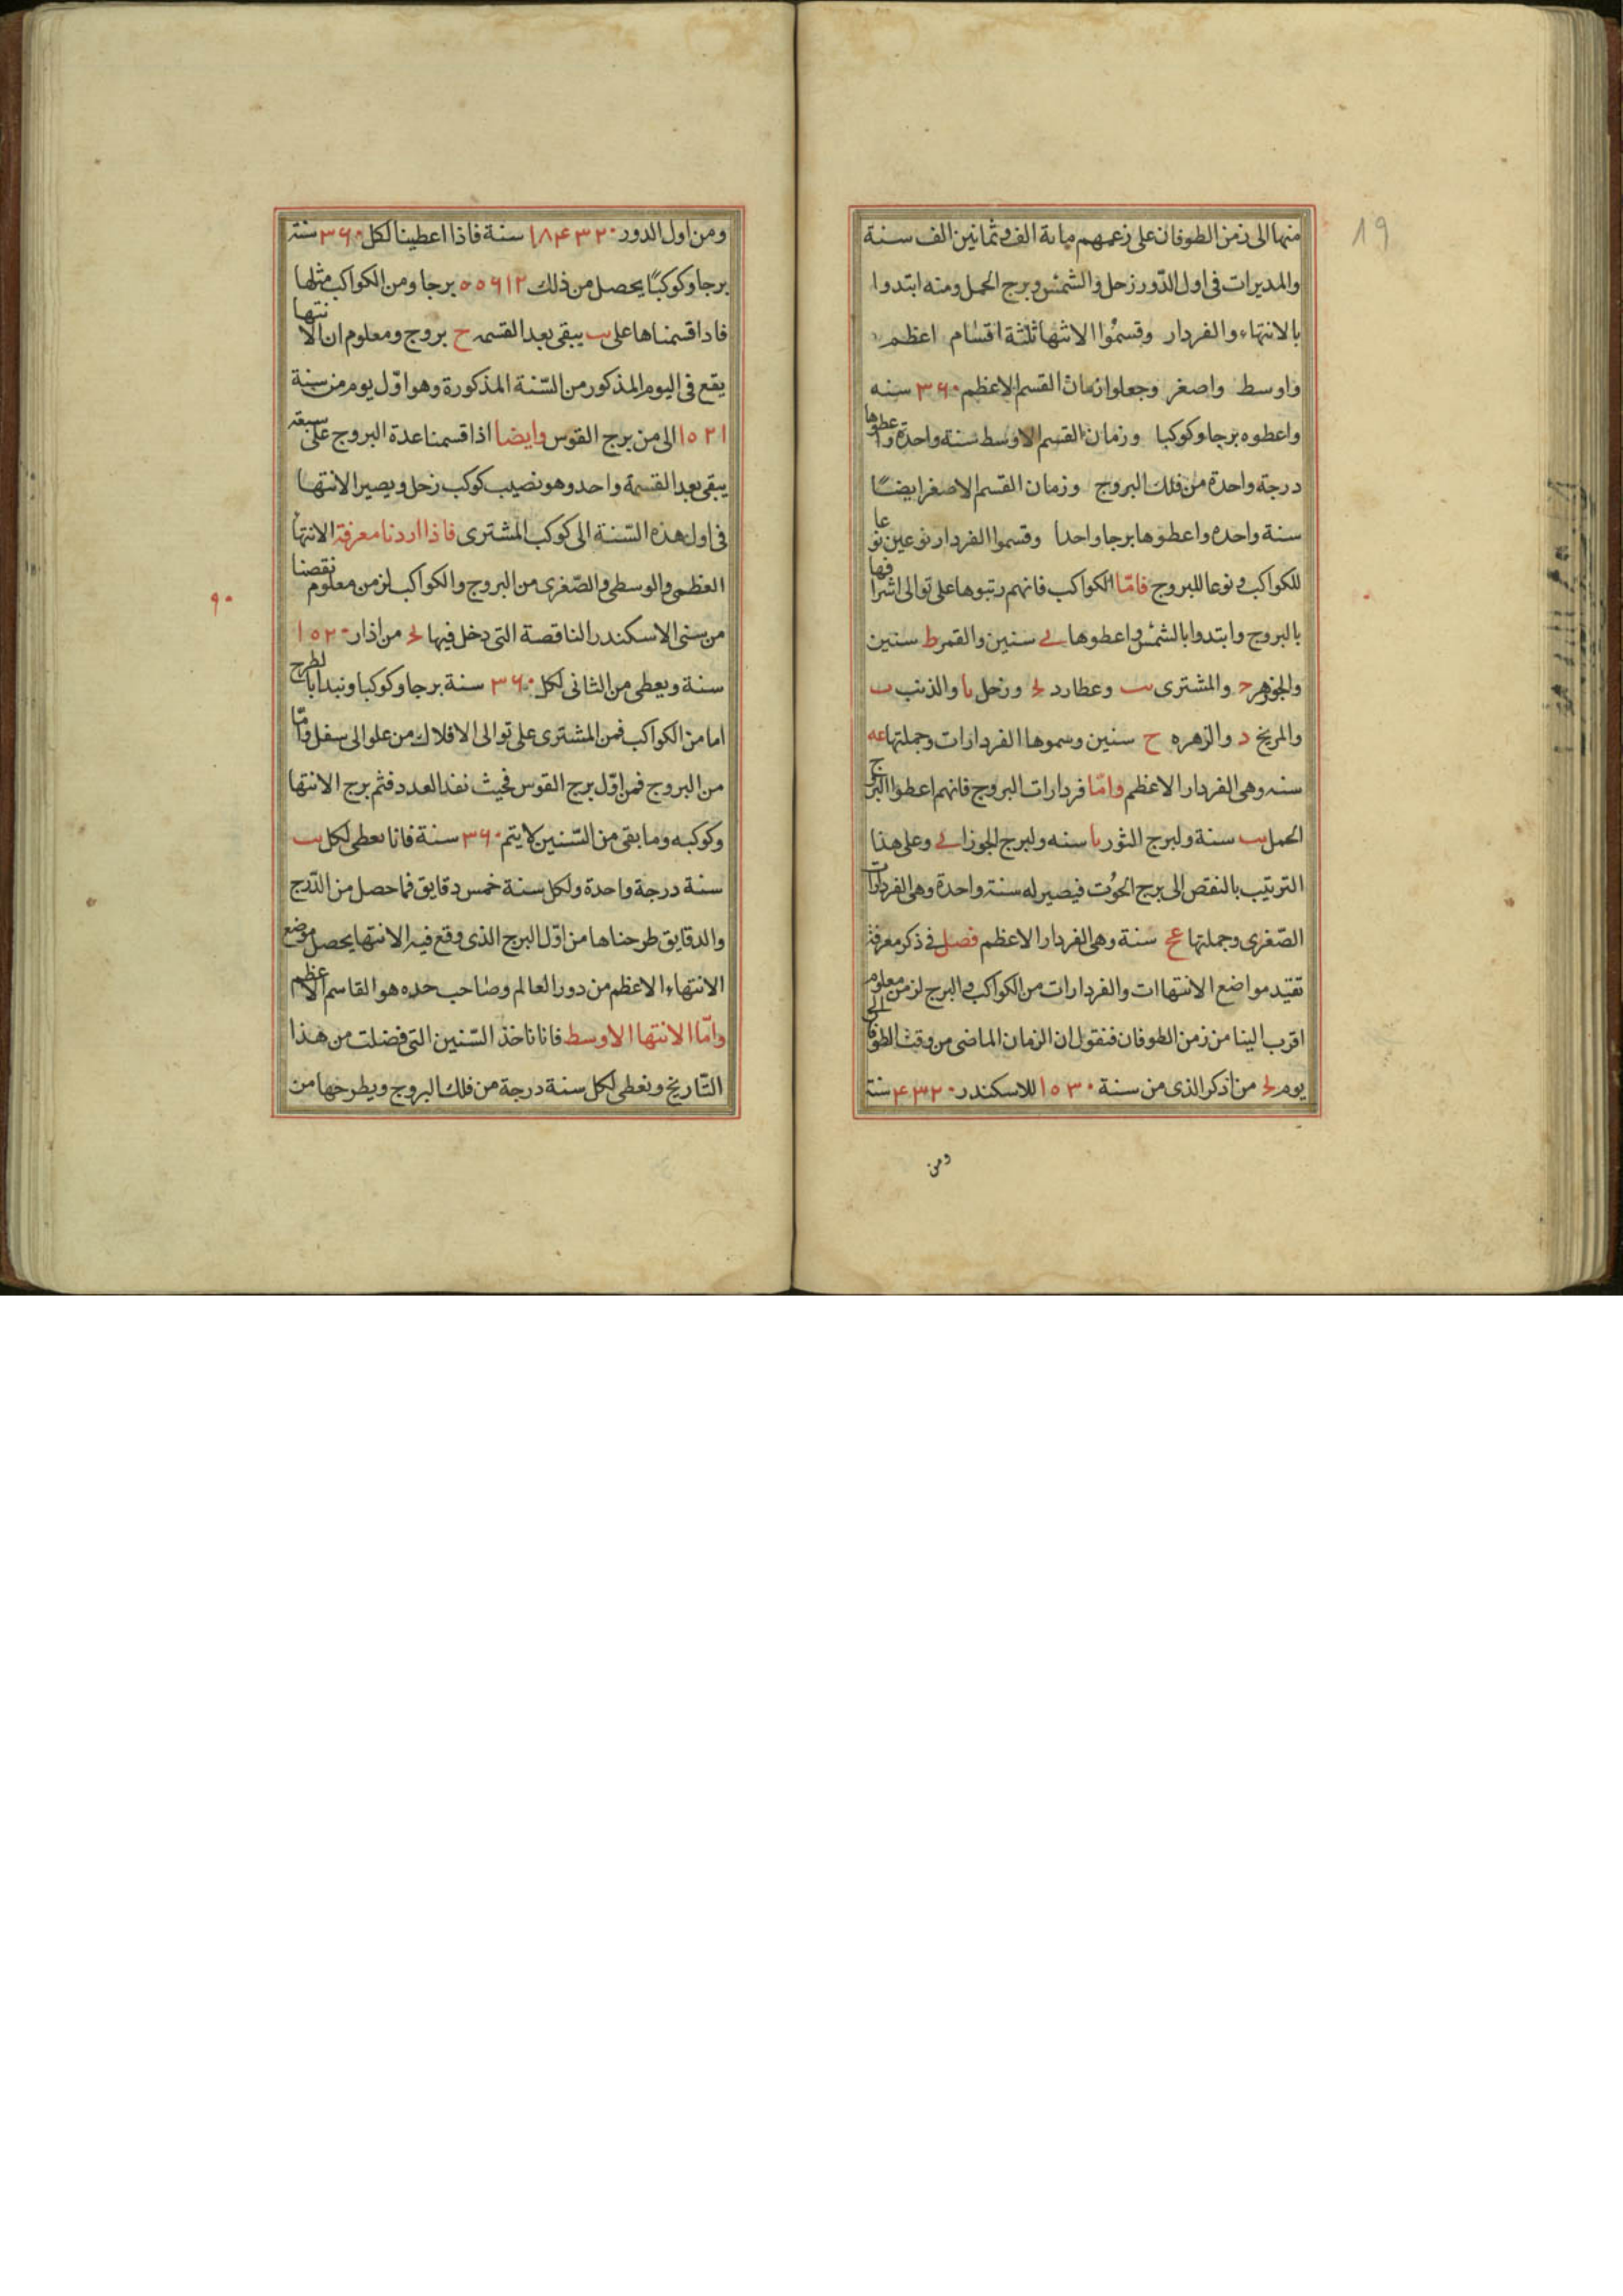 19
منها الى زمن الطوفان على زعمهم مائة الف وثمانين الف سنة
والمدبرات فى اول الدّور زحل والشمس وبرج الحمل ومنه ابتدوا
بالانتهاء والفردار وقسمُوا الانتها ثلثة اقسام اعظم
واوسط واصغر وجعلوا زمان القسم الاعظم ٣٦٠ سنه
واعطوه برجا وكوكبا وزمان القسم الاوسط سنة واحدة واعطوها
درجة واحدة من فلك البروج وزمان القسم الاصغر ايضًا
سنة واحده واعطوها برجا واحدا وقسموا الفردار نوعين نوعا
للكواكب ونوعا للبروج فامّا الكواكب فانهم رتبوها على توالى اشرافها
بالبروج وابتدوا بالشمس واعطوها ى سنين والقمر ط سنين
والجوزهر ج والمشترى يب وعطارد يج وزحل يا والذنب ب
والمريخ د والزهره ح سنين وسموها الفردارات وجملتها عه
سنه وهى الفردار الاعظم وامّا فردارات البروج فانهم اعطوا البروج
الحمل يب سنة ولبرج الثور يا سنه ولبرج الجوزا ى وعلى هذا
الترتيب بالنقص الى برج الحُوت فيصير له سنة واحدة وهى الفردارات
الصّغرى وجملتها عح سنة وهى الفردار الاعظم فصل فى ذكر معرفة
تقيّد مواضع الانتهاات والفردارات من الكواكب والبرج لزمن معلوم
اقرب الينا من زمن الطوفان فنقول ان الزمان الماضى من وقت الطوفان الى
يوم يج من اذكر الذى من سنة ١٥٣٠ للاسكندر ٤٣٢٠ سنة
ومن
ومن اول الدور ١٨٤٣٢٠ سنة فاذا اعطينا لكل ٣٦٠ سنة
برجا وكوكبًا يحصل من ذلك ٥٥٦١٢ برجا ومن الكواكب مثلها
فاذا قسمناها على يب يبقى بعد القسمه ح بروج ومعلوم ان الانتها
يقع فى اليوم المذكور من السّنة المذكورة وهو اوّل يوم من سنة
١٥٢١ الى من برج القوس وايضا اذا قسمنا عدة البروج على سبعة
يبقى بعد القسمة واحد وهو نصيب كوكب زحل ويصير الانتها
فى اول هذه السّنة الى كوكب المشترى فاذا اردنا معرفة الانتها
العظمى والوسطى والصّغرى من البروج والكواكب لزمن معلوم نقصنا
٩٠
من سنى الاسكندر الناقصة التى دخل فيها يج من اذار ١٥٢٠
سنة ويعطى من الثانى لكل ٣٦٠ سنة برجا وكوكبا ونبدا بالطرح
اما من الكواكب فمن المشترى على توالى الافلاك من علو الى سفل وامّا
من البروج فمن اوّل برج القوس فحيث نفد العدد فثم برج الانتها
وكوكبه وما بقى من السّنين لا يتم ٣٦٠ سنة فانا نعطى لكل يب
سنة درجة واحدة ولكل سنة خمس دقايق فما حصل من الدّرج
والدقايق طرحناها من اوّل البرج الذى وقع فيه الانتها يحصل موضع
الانتهاء الاعظم من دور العالم وصاحب حده هو القاسم الاعظم
وامّا الانتها الاوسط فانا ناخذ السّنين التى فضلت من هذا
التّاريخ ونعطى لكل سنة درجة من فلك البروج ويطرحها من